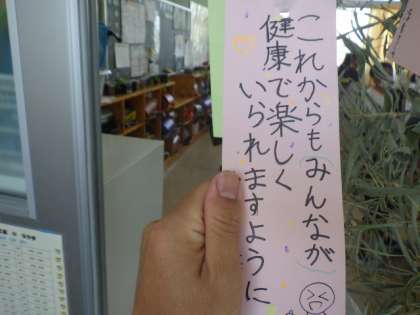 これからもみんなが
健康で楽しく
いられますように